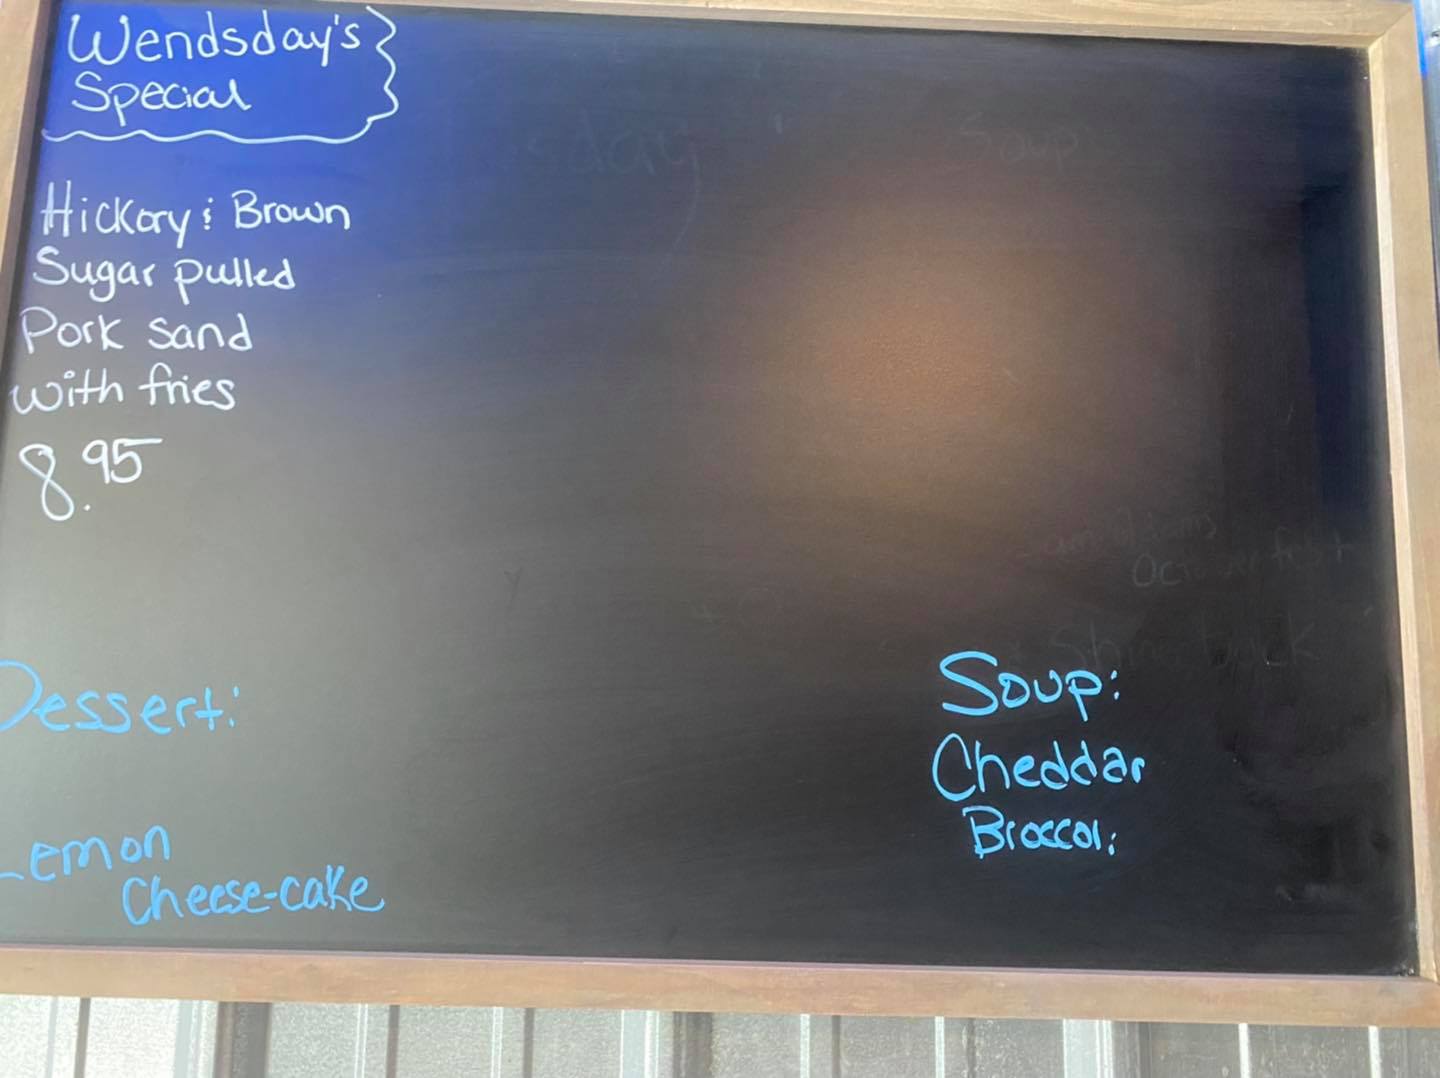 Wendsday's
Special
Hickory & Brown
Sugar pulled
Pork sand
with fries
8.95
Dessert:
Lemon
Cheese-cake
Soup:
Cheddar
Broccoli
day
Soup
October